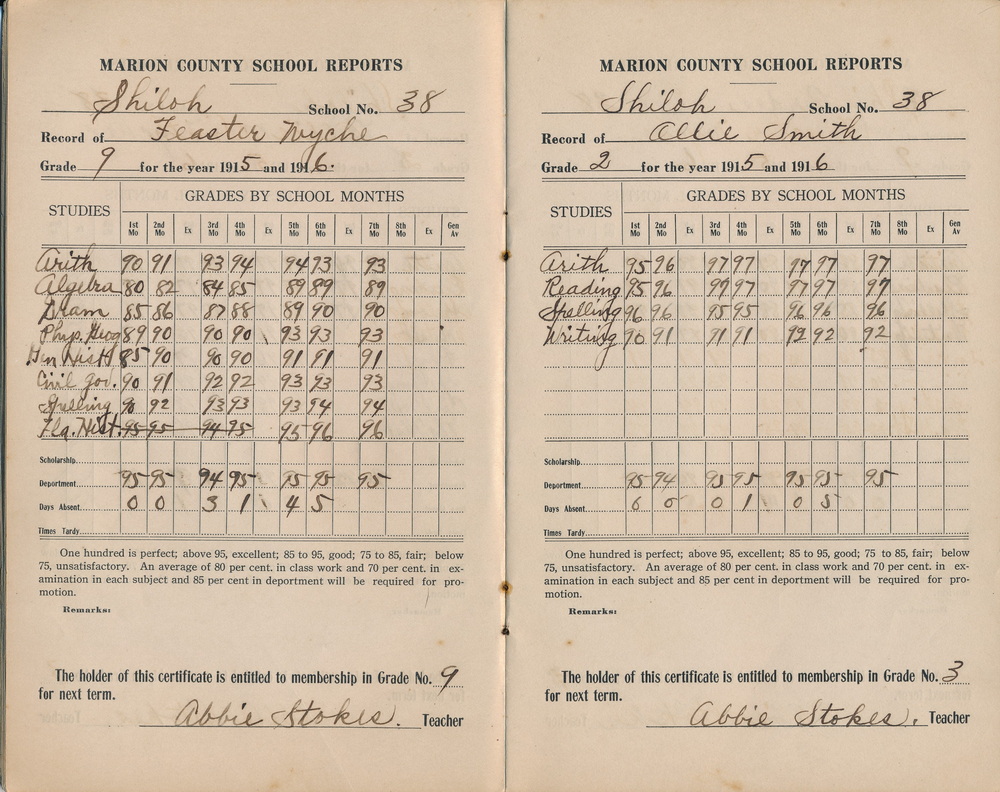 MARION COUNTY SCHOOL REPORTS
Shiloh School No. 38
Record of Feaster Wyche
Grade 9 for the year 1915 and 1916.
STUDIES GRADES BY SCHOOL MONTHS
1st Mo 2nd Mo Ex 3rd Mo 4th Mo Ex 5th Mo 6th Mo Ex 7th Mo 8th Mo Ex Gen Av
Arith 90 91 93 94 94 93 93
Algebra 80 82 84 85 89 89 89
Gram 85 86 87 88 89 90 90
Phys. Geog 89 90 90 90 93 93 93
Gen Hist 85 90 90 90 91 91 91
Civil Gov. 90 91 92 92 93 93 93
Spelling 90 92 93 93 93 94 94
Fla. Hist. 95 95 94 95 95 96 96
Scholarship
Department 95 95 94 95 95 95 95
Days Absent 0 0 3 1 4 5
Times Tardy
One hundred is perfect; above 95, excellent; 85 to 95, good; 75 to 85, fair; below
75, unsatisfactory. An average of 80 per cent. in class work and 70 per cent. in ex-
amination in each subject and 85 per cent in deportment will be required for pro-
motion.
Remarks:
The holder of this certificate is entitled to membership in Grade No. 9
for next term.
Abbie Stokes. Teacher
MARION COUNTY SCHOOL REPORTS
Shiloh School No. 38
Record of Ollie Smith
Grade 2 for the year 1915 and 1916
STUDIES GRADES BY SCHOOL MONTHS
1st Mo 2nd Mo Ex 3rd Mo 4th Mo Ex 5th Mo 6th Mo Ex 7th Mo 8th Mo Ex Gen Av
Arith 95 96 97 97 97 97 97
Reading 95 96 97 97 97 97 97
Spelling 96 96 95 95 96 96 96
Writing 90 91 91 91 92 92 92
Scholarship
Department 95 94 95 95 95 95 95
Days Absent 6 0 0 1 0 5
Times Tardy
One hundred is perfect; above 95, excellent; 85 to 95, good; 75 to 85, fair; below
75, unsatisfactory. An average of 80 per cent. in class work and 70 per cent. in ex-
amination in each subject and 85 per cent in deportment will be required for pro-
motion.
Remarks:
The holder of this certificate is entitled to membership in Grade No. 3
for next term.
Abbie Stokes. Teacher